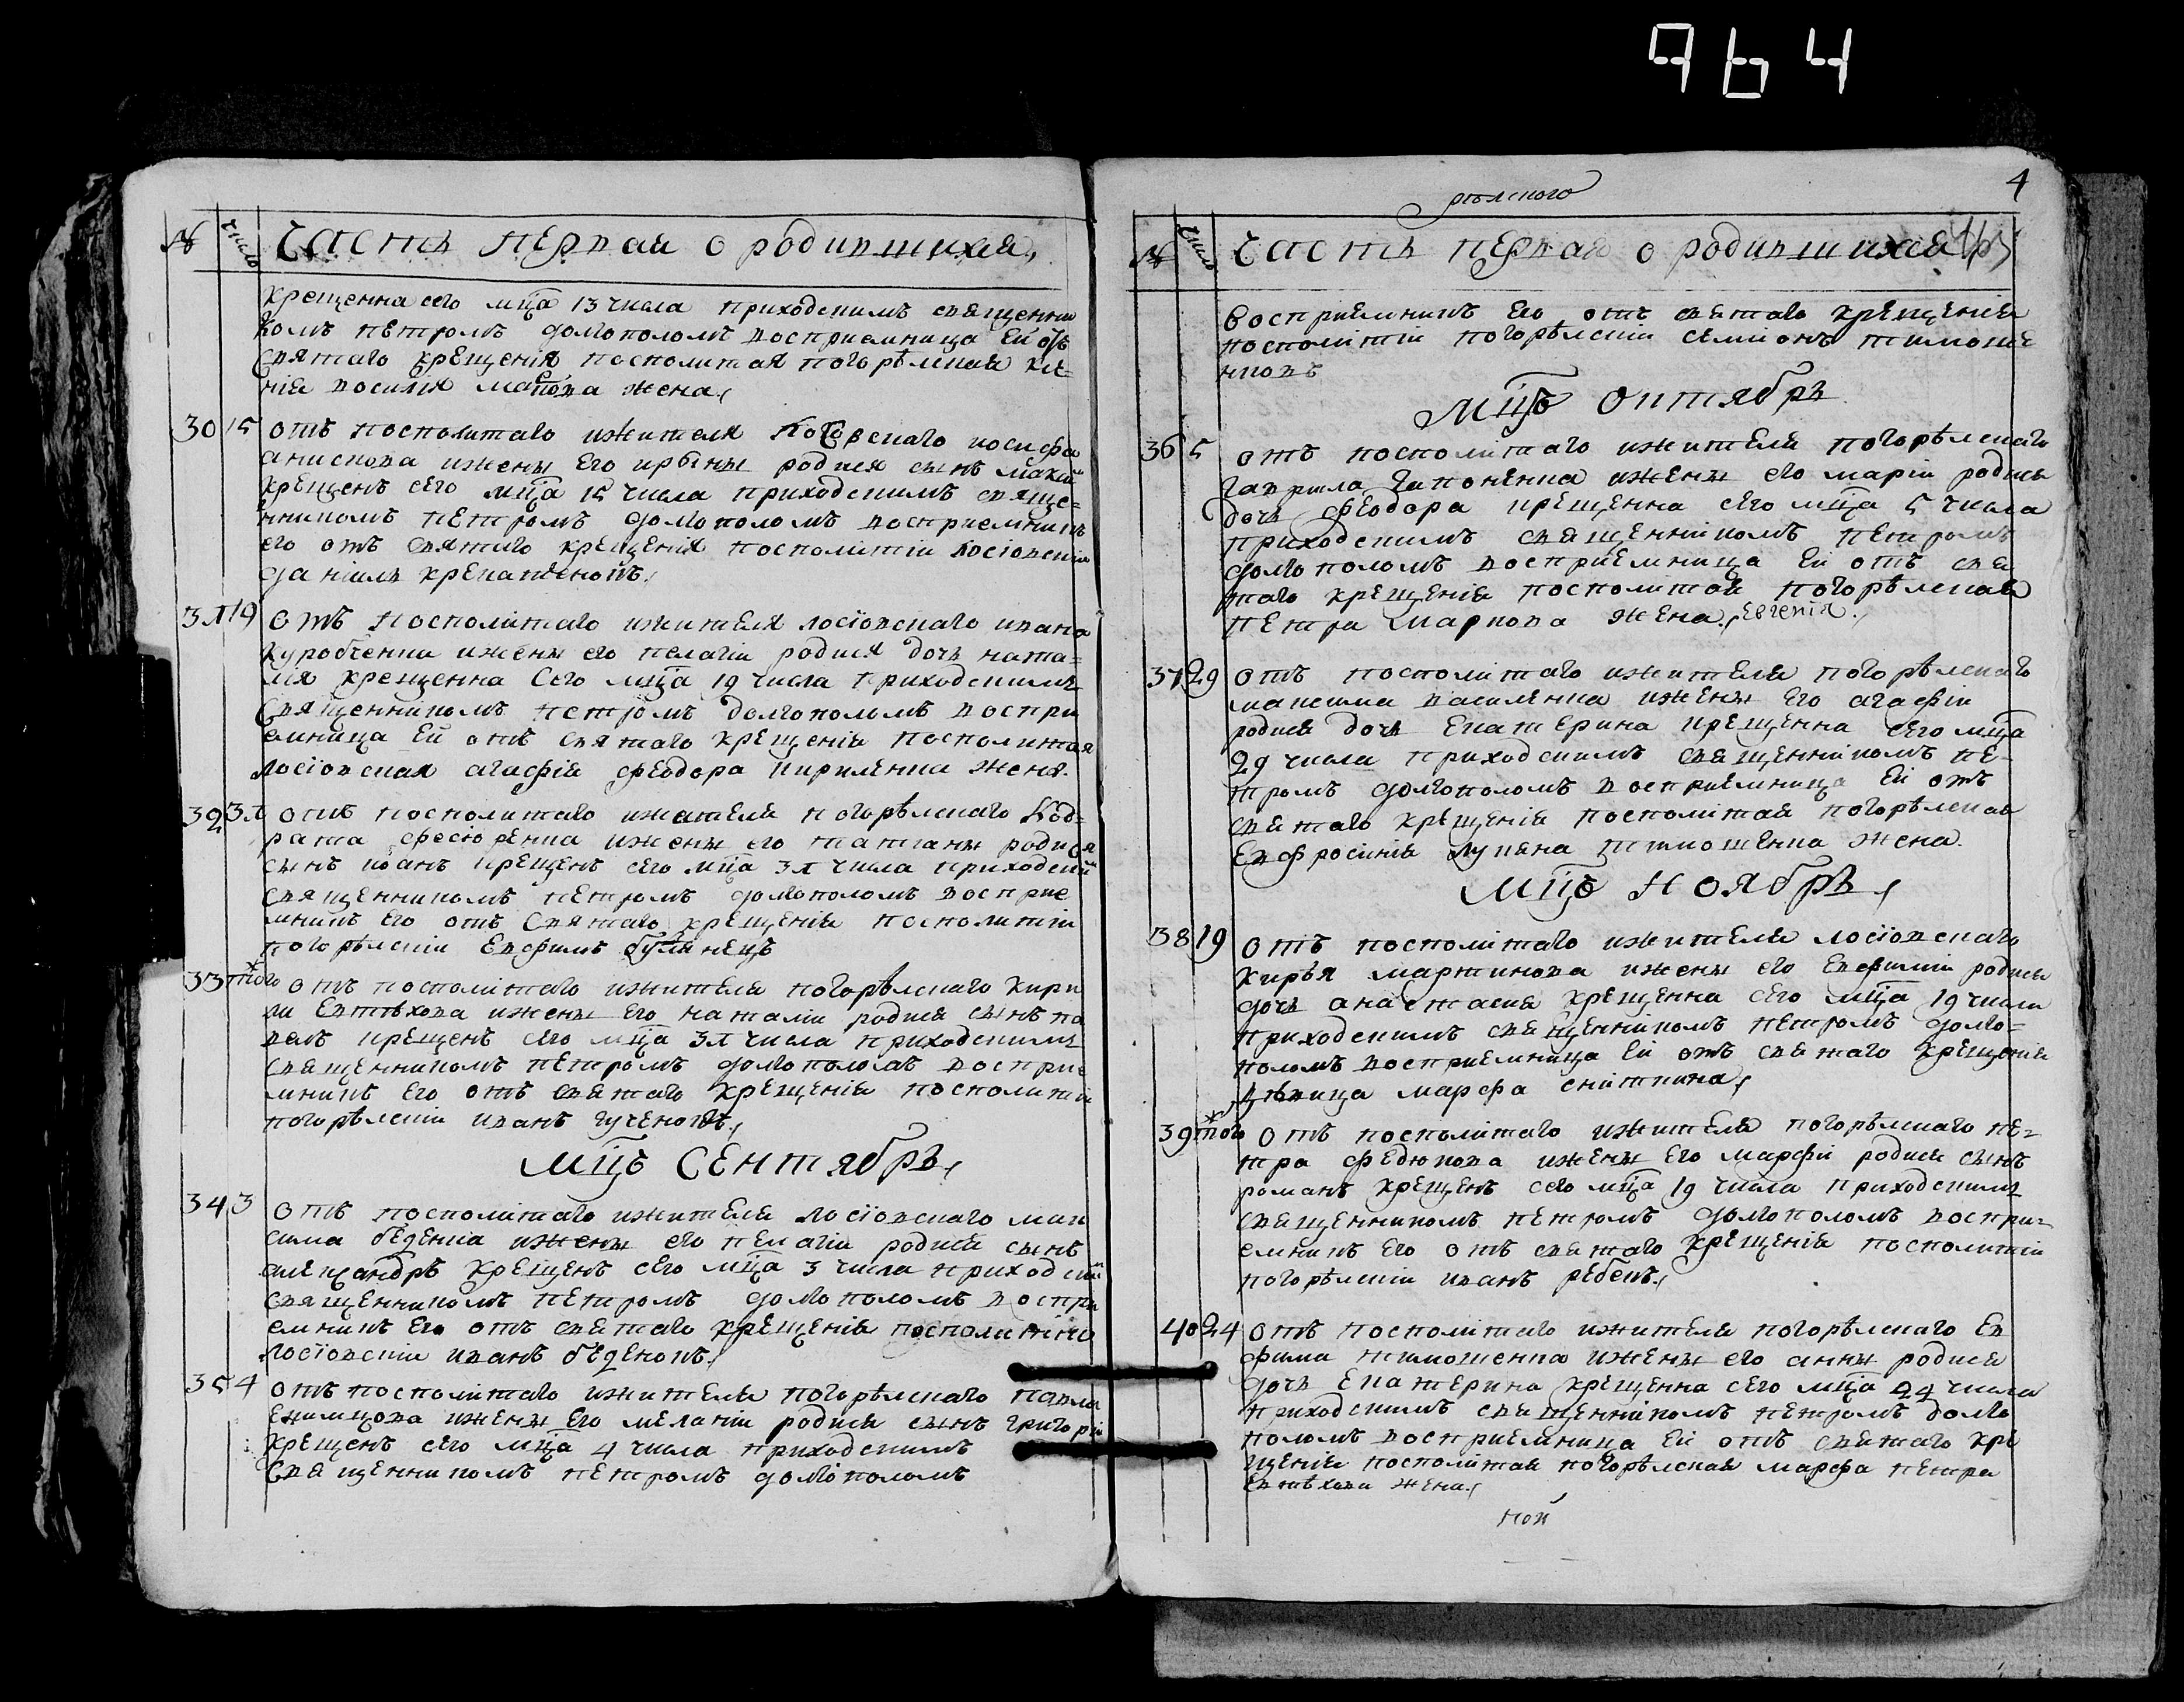 964
№ число Часть первая о родившихся,
крещенна сего мца 13 числа приходскимъ священни
комъ петромъ долгополомъ восприемница ей отъ
святаго крещения посполитая погорѣлская
василія жена,
30 15 отъ посполитаго и жителя иосифа
анискова и жены его ирины родися сынъ
крещенъ сего мца 15 числа приходскимъ свяще=
нникомъ петромъ долгополомъ восприемникъ
его отъ святаго крещения посполитій лосіовскій
даніилъ
31 19 отъ посполитаго и жителя лосіовскаго ивана
куробченка и жены его пелагіи родися дочь ната=
лія крещенна сего мца 19 числа приходскимъ
священникомъ петромъ долгополомъ воспри
емница ей отъ святаго крещенія посполитая
лосіовская агафія феодора кириленка жена.
32 31 отъ посполитаго и жителя погорѣлскаго код=
рата фесюренка и жены его татіаны родися
сынъ иоанъ крещенъ сего мца 31 числа приходский
священникомъ петромъ долгополомъ восприе
мникъ его отъ святаго крещенія посполитій
погорѣлскій евфимъ
33 того отъ посполитаго и жителя погорѣлскаго кири
ли евтѣхова и жены его наталіи родися сынъ па
велъ крещенъ сего мца 31 числа приходскимъ
священникомъ петромъ долгополомъ восприе
мникъ его отъ святаго крещенія посполитій
погорѣлскій иванъ гученокъ,
Мцъ Сентябрь,
34 3 отъ посполитаго и жителя лосіовскаго мак
сима беденка и жены его пелагіи родися сынъ
александръ крещенъ сего мца 3 числа приходский
священникомъ петромъ долгополомъ воспри
емникъ его отъ святаго крещенія посполитій
лосіовскій иванъ беденокъ,
35 4 отъ посполитаго и жителя погорѣлскаго павла
екимцова и жены его меланіи родися сынъ григорій
крещенъ сего мца 4 числа приходскимъ
священникомъ петромъ долгополомъ
4
рѣлского
№ число Часть первая о родившихся
восприемникъ его отъ святаго крещенія
посполітій погорѣлскій семіонъ тимоше
нковъ
Мцъ октябрь
36 5 отъ посполітаго и жителя погорѣлскаго
гаврила гапоненка и жены его маріи родись
дочь феодора крещенна сего мца 5 числа
приходскимъ священнікомъ петромъ
долгополомъ восприемница ей отъ свя
таго крещенія посполітая погорѣлская
петра маркова жена, Евгенія,
37 29 отъ посполітаго и жителя погорѣлскаго
максима василенка и жены его агафіи
родися дочь екатерина крещенна сего мца
29 числа приходскимъ священнікомъ пе-
тромъ долгополомъ восприемница ей отъ
святаго крещенія посполітая погорѣлская
евфросинія лукяна тимошенка жена.
Мцъ ноябрь,
38 19 отъ посполітаго и жителя лосіовскаго
кирѣя мартинова и жены его евфиміи родися
дочь анастасия крещенна сего мца 19 числа
приходскимъ священнікомъ петромъ долго=
поломъ восприемница ей отъ святаго крещенія
дѣвица марфа снѣткина,
39 того отъ посполітаго и жителя погорѣлскаго пе=
тра федюкова и жены его марфи родися сынъ
романъ крещенъ сего мца 19 числа приходскимъ
священникомъ петромъ долгополомъ воспри=
емникъ его отъ святаго крещенія посполитій
погорѣлскій иванъ ребенъ,
40 24 отъ посполітаго и жителя погорѣлскаго ев
фима тимошенка и жены его анны родися
дочь екатерина крещенна сего мца 24 числа
приходскимъ священнікомъ петромъ долго
поломъ восприемница ей отъ святаго кре
щенія посполітая погорѣлская марфа петра
евтѣхова жена,
кой